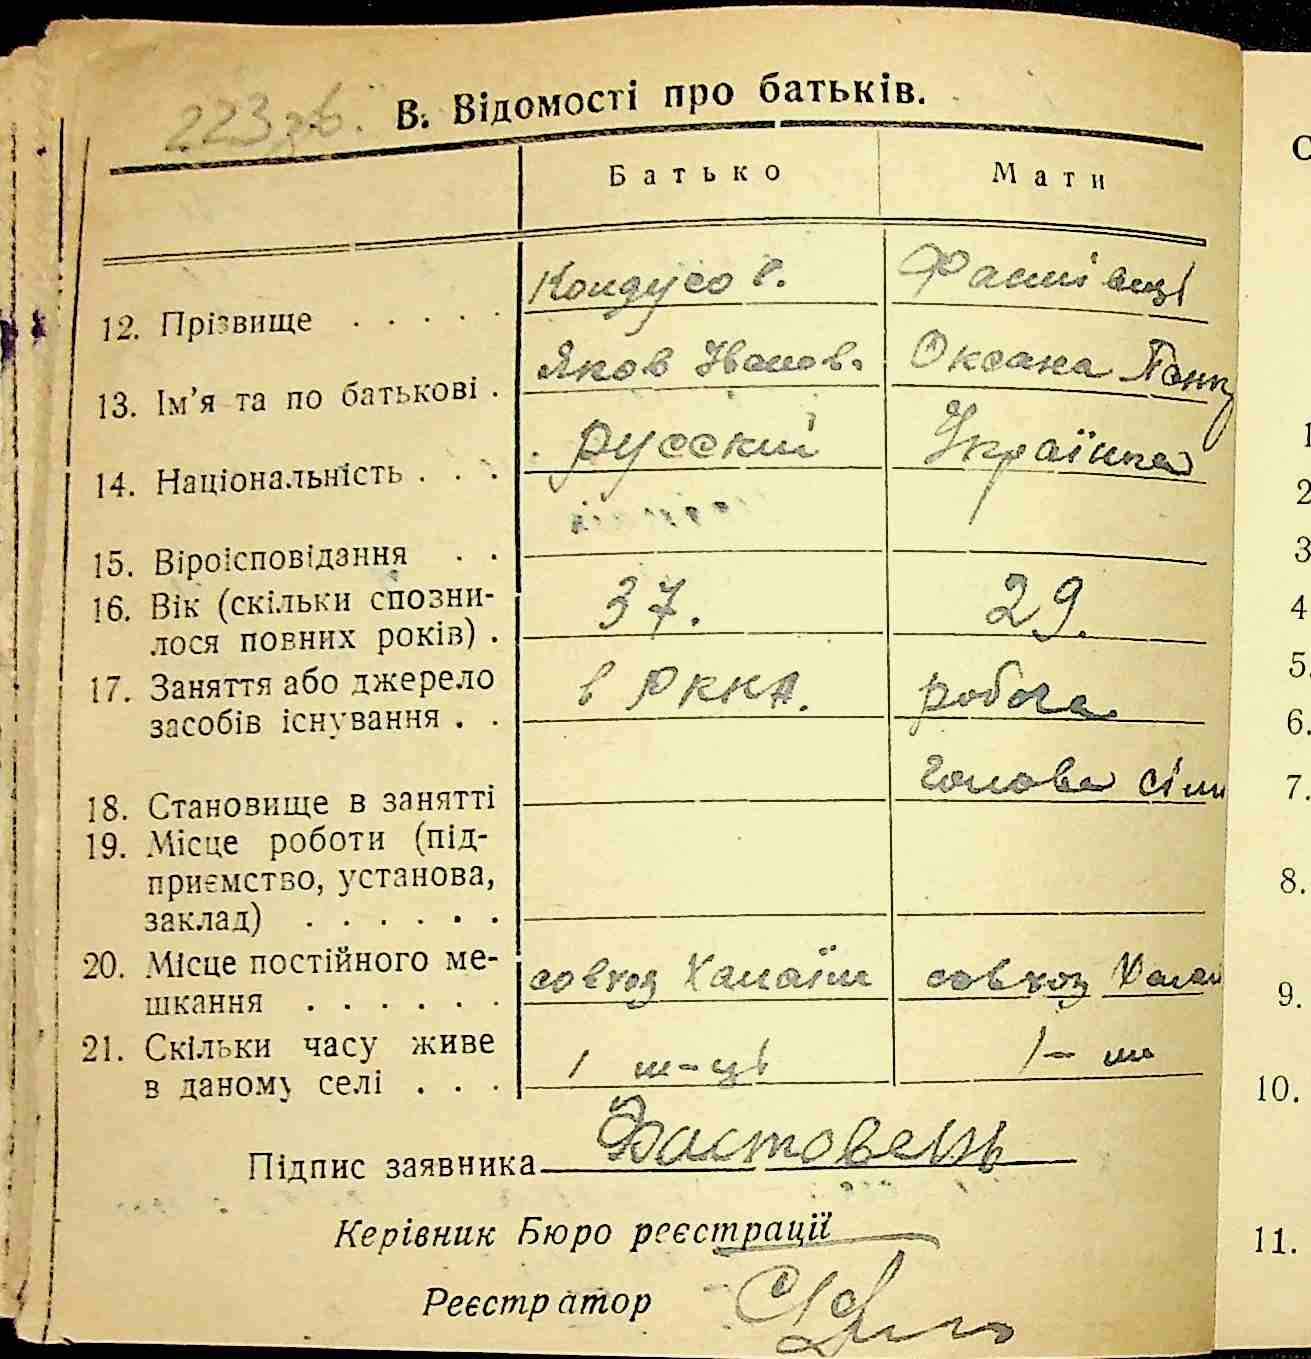 223 зв.
В. Відомості про батьків.
Батько Мати
12. Прізвище . . . . .
13. Ім’я та по батькові . Яков Иванов. Оксана
14. Національність . . . русский Українка
15. Віроісповідання . .
16. Вік (скільки спозни-
лося повних років) . 37. 29.
17. Заняття або джерело
засобів існування . . в РККА. робоча
18. Становище в занятті голова сім
19. Місце роботи (під-
приємство, установа,
заклад) . . . . . .
20. Місце постійного ме-
шкання . . . . . . совхоз совхоз
21. Скільки часу живе
в даному селі . . . 1 м-ць 1-м
Підпис заявника Фастовець
Керівник Бюро реєстрації
Реєстратор
С
1
2
3
4
5.
6.
7.
8.
9.
10.
11.